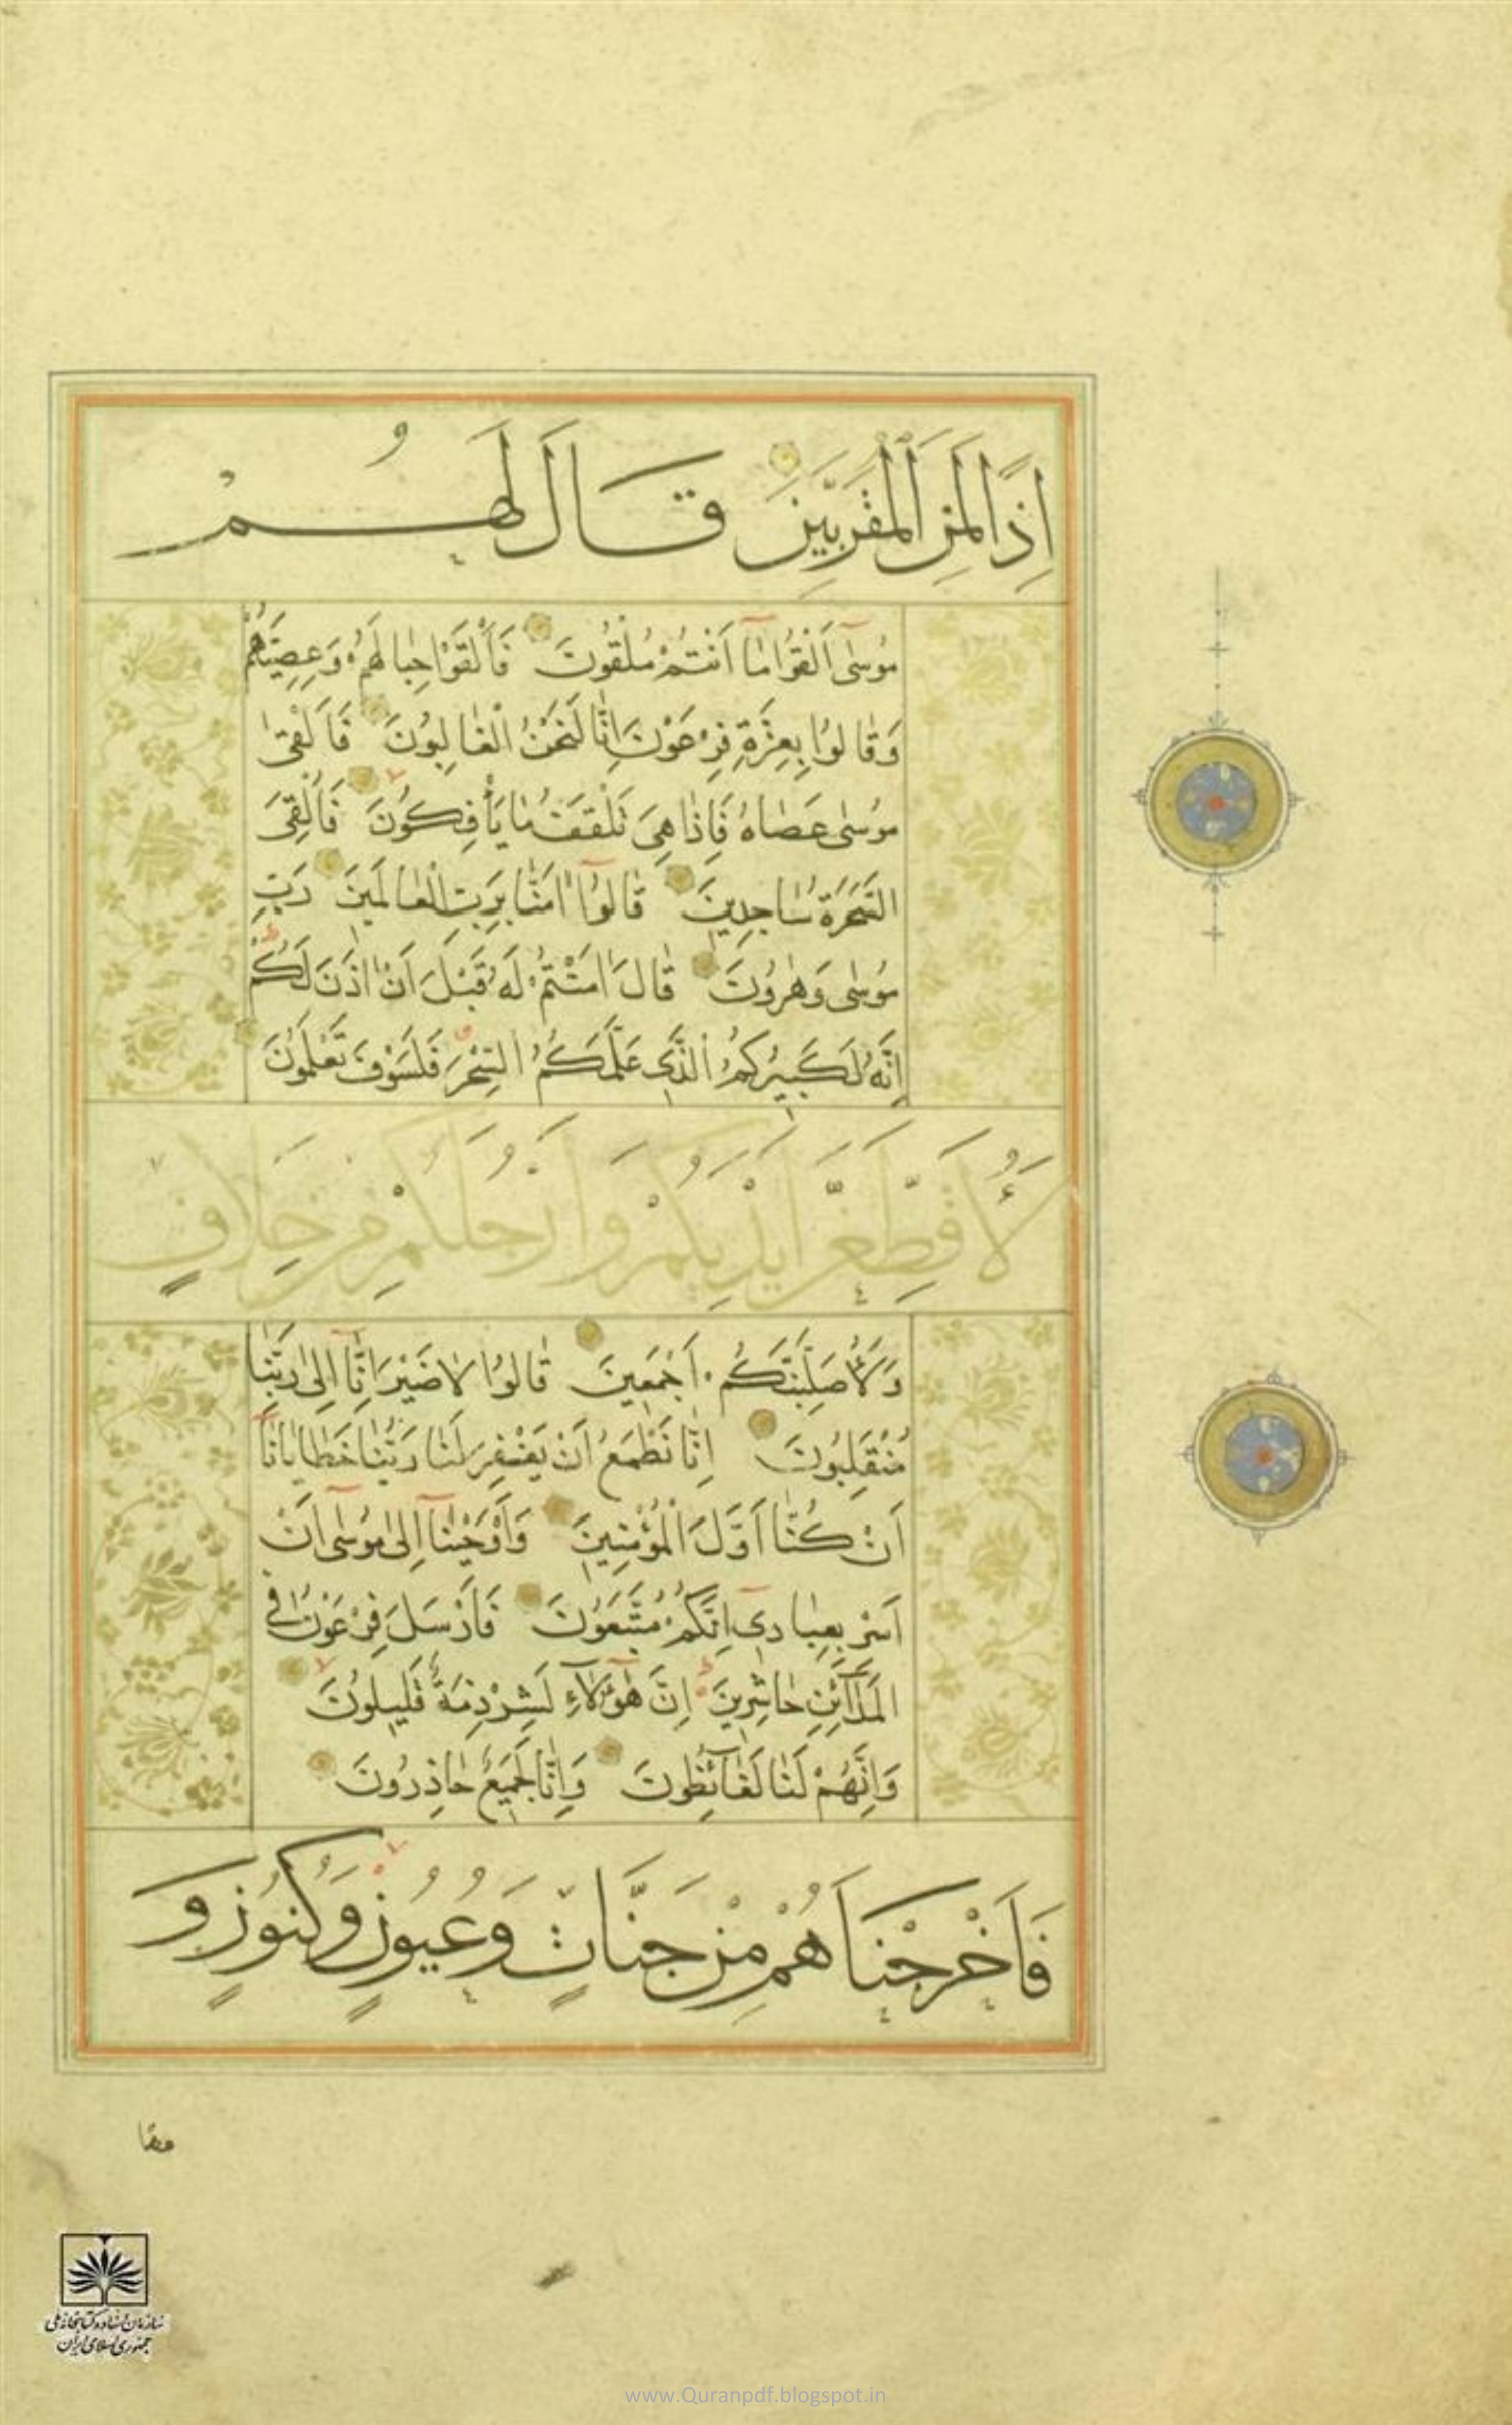 اِذًا لَمِنَ الْمُقَرَّبِينَ قَالَ لَهُمْ
مُوسٰٓى اَلْقُوا مٰٓا اَنْتُمْ مُلْقُونَ فَاَلْقَوْا حِبٰالَهُمْ وَعِصِيَّهُمْ
وَقٰالُوا بِعِزَّةِ فِرْعَوْنَ اِنّٰا لَنَحْنُ الْغٰالِبُونَ فَاَلْقٰى
مُوسٰى عَصٰاهُ فَاِذٰا هِىَ تَلْقَفُ مٰا يَأْفِكُونَ فَاُلْقِىَ
السَّحَرَةُ سٰاجِدِينَ قٰالُوٓا اٰمَنّٰا بِرَبِّ الْعٰالَمِينَ رَبِّ
مُوسٰى وَهٰرُونَ قٰالَ اٰمَنْتُمْ لَهُ قَبْلَ اَنْ اٰذَنَ لَكُمْ
اِنَّهُ لَكَبِيرُكُمُ الَّذِى عَلَّمَكُمُ السِّحْرَ فَلَسَوْفَ تَعْلَمُونَ
لَاُقَطِّعَنَّ اَيْدِيَكُمْ وَاَرْجُلَكُمْ مِنْ خِلَافٍ
وَلَاُصَلِّبَنَّكُمْ اَجْمَعِينَ قٰالُوا لٰا ضَيْرَ اِنّٰٓا اِلٰى رَبِّنٰا
مُنْقَلِبُونَ اِنّٰا نَطْمَعُ اَنْ يَغْفِرَ لَنٰا رَبُّنٰا خَطٰايٰانٰٓا
اَنْ كُنّٰٓا اَوَّلَ الْمُؤْمِنِينَ وَاَوْحَيْنٰٓا اِلٰى مُوسٰٓى اَنْ
اَسْرِ بِعِبٰادِىٓ اِنَّكُمْ مُتَّبَعُونَ فَاَرْسَلَ فِرْعَوْنُ فِى
الْمَدٰٓائِنِ حٰاشِرِينَ اِنَّ هٰٓؤُلٰٓاءِ لَشِرْذِمَةٌ قَلِيلُونَ
وَاِنَّهُمْ لَنٰا لَغٰٓائِظُونَ وَاِنّٰا لَجَمِيعٌ حٰاذِرُونَ
فَاَخْرَجْنَاهُمْ مِنْ جَنَّاتٍ وَعُيُونٍ وَكُنُوزٍ وَ
مقا
سازمان اسناد و کتابخانه ملی
جمهوری اسلامی ایران
www.Quranpdf.blogspot.in